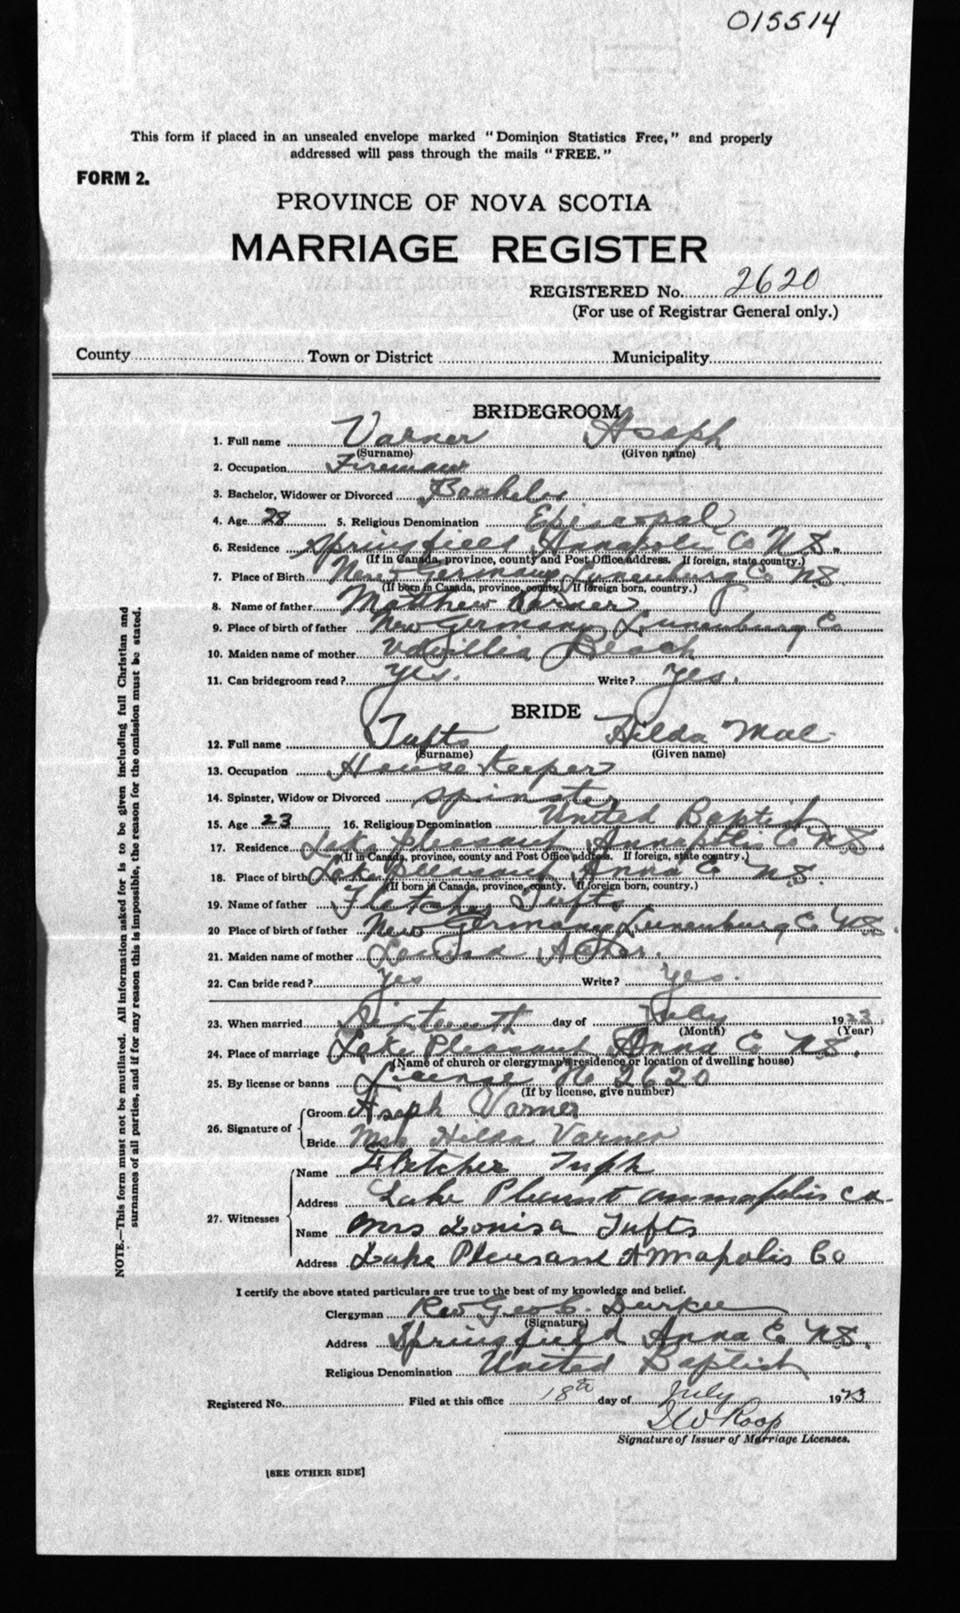 015514
This form if placed in an unsealed envelope marked "Dominion Statistics Free," and properly
addressed will pass through the mails "FREE."
FORM 2.
PROVINCE OF NOVA SCOTIA
MARRIAGE REGISTER
REGISTERED No. 2620
(For use of Registrar General only.)
County Town or District Municipality
BRIDEGROOM
1. Full name Varner Asaph
(Surname) (Given name)
2. Occupation Fireman
3. Bachelor, Widower or Divorced Bachelor
4. Age 28 5. Religious Denomination Episcopal
6. Residence Springfield Annapolis Co N.S.
(If in Canada, province, county and Post Office address. If foreign, state country.)
7. Place of Birth New Germany Lunenburg Co N.S.
(If born in Canada, province, county. If foreign born, country.)
8. Name of father Matthew Varner
9. Place of birth of father New Germany Lunenburg Co
10. Maiden name of mother
11. Can bridegroom read? Yes. Write? Yes.
BRIDE
12. Full name Tufts Hilda Mae
(Surname) (Given name)
13. Occupation House Keeper
14. Spinster, Widow or Divorced Spinster
15. Age 23 16. Religious Denomination United Baptist
17. Residence Lake Pleasant Annapolis Co N.S.
(If in Canada, province, county and Post Office address. If foreign, state country.)
18. Place of birth Lake Pleasant Anna Co N.S.
(If born in Canada, province, county. If foreign born, country.)
19. Name of father Fletcher Tufts
20 Place of birth of father New Germany Lunenburg Co N.S.
21. Maiden name of mother Louisa
22. Can bride read? Yes Write? Yes.
23. When married Sixteenth day of July 1923
(Month) (Year)
24. Place of marriage Lake Pleasant Anna Co N.S.
(Name of church or clergyman's residence or location of dwelling house)
25. By license or banns License No 2620
(If by license, give number)
26. Signature of Groom Asaph Varner
Bride Mrs Hilda Varner
27. Witnesses
Name Fletcher
Address Lake Annapolis Co.
Name Mrs Louisa Tufts
Address Lake Pleasant Annapolis Co
I certify the above stated particulars are true to the best of my knowledge and belief.
Clergyman Rev Geo C. Durkee
(Signature)
Address Springfield Anna Co N.S.
Religious Denomination United Baptist
Registered No. Filed at this office 18th day of July 1923
Roop
Signature of Issuer of Marriage Licenses.
[SEE OTHER SIDE]
NOTE.—This form must not be mutilated. All information asked for is to be given including full Christian and
surnames of all parties, and if for any reason this is impossible, the reason for the omission must be stated.